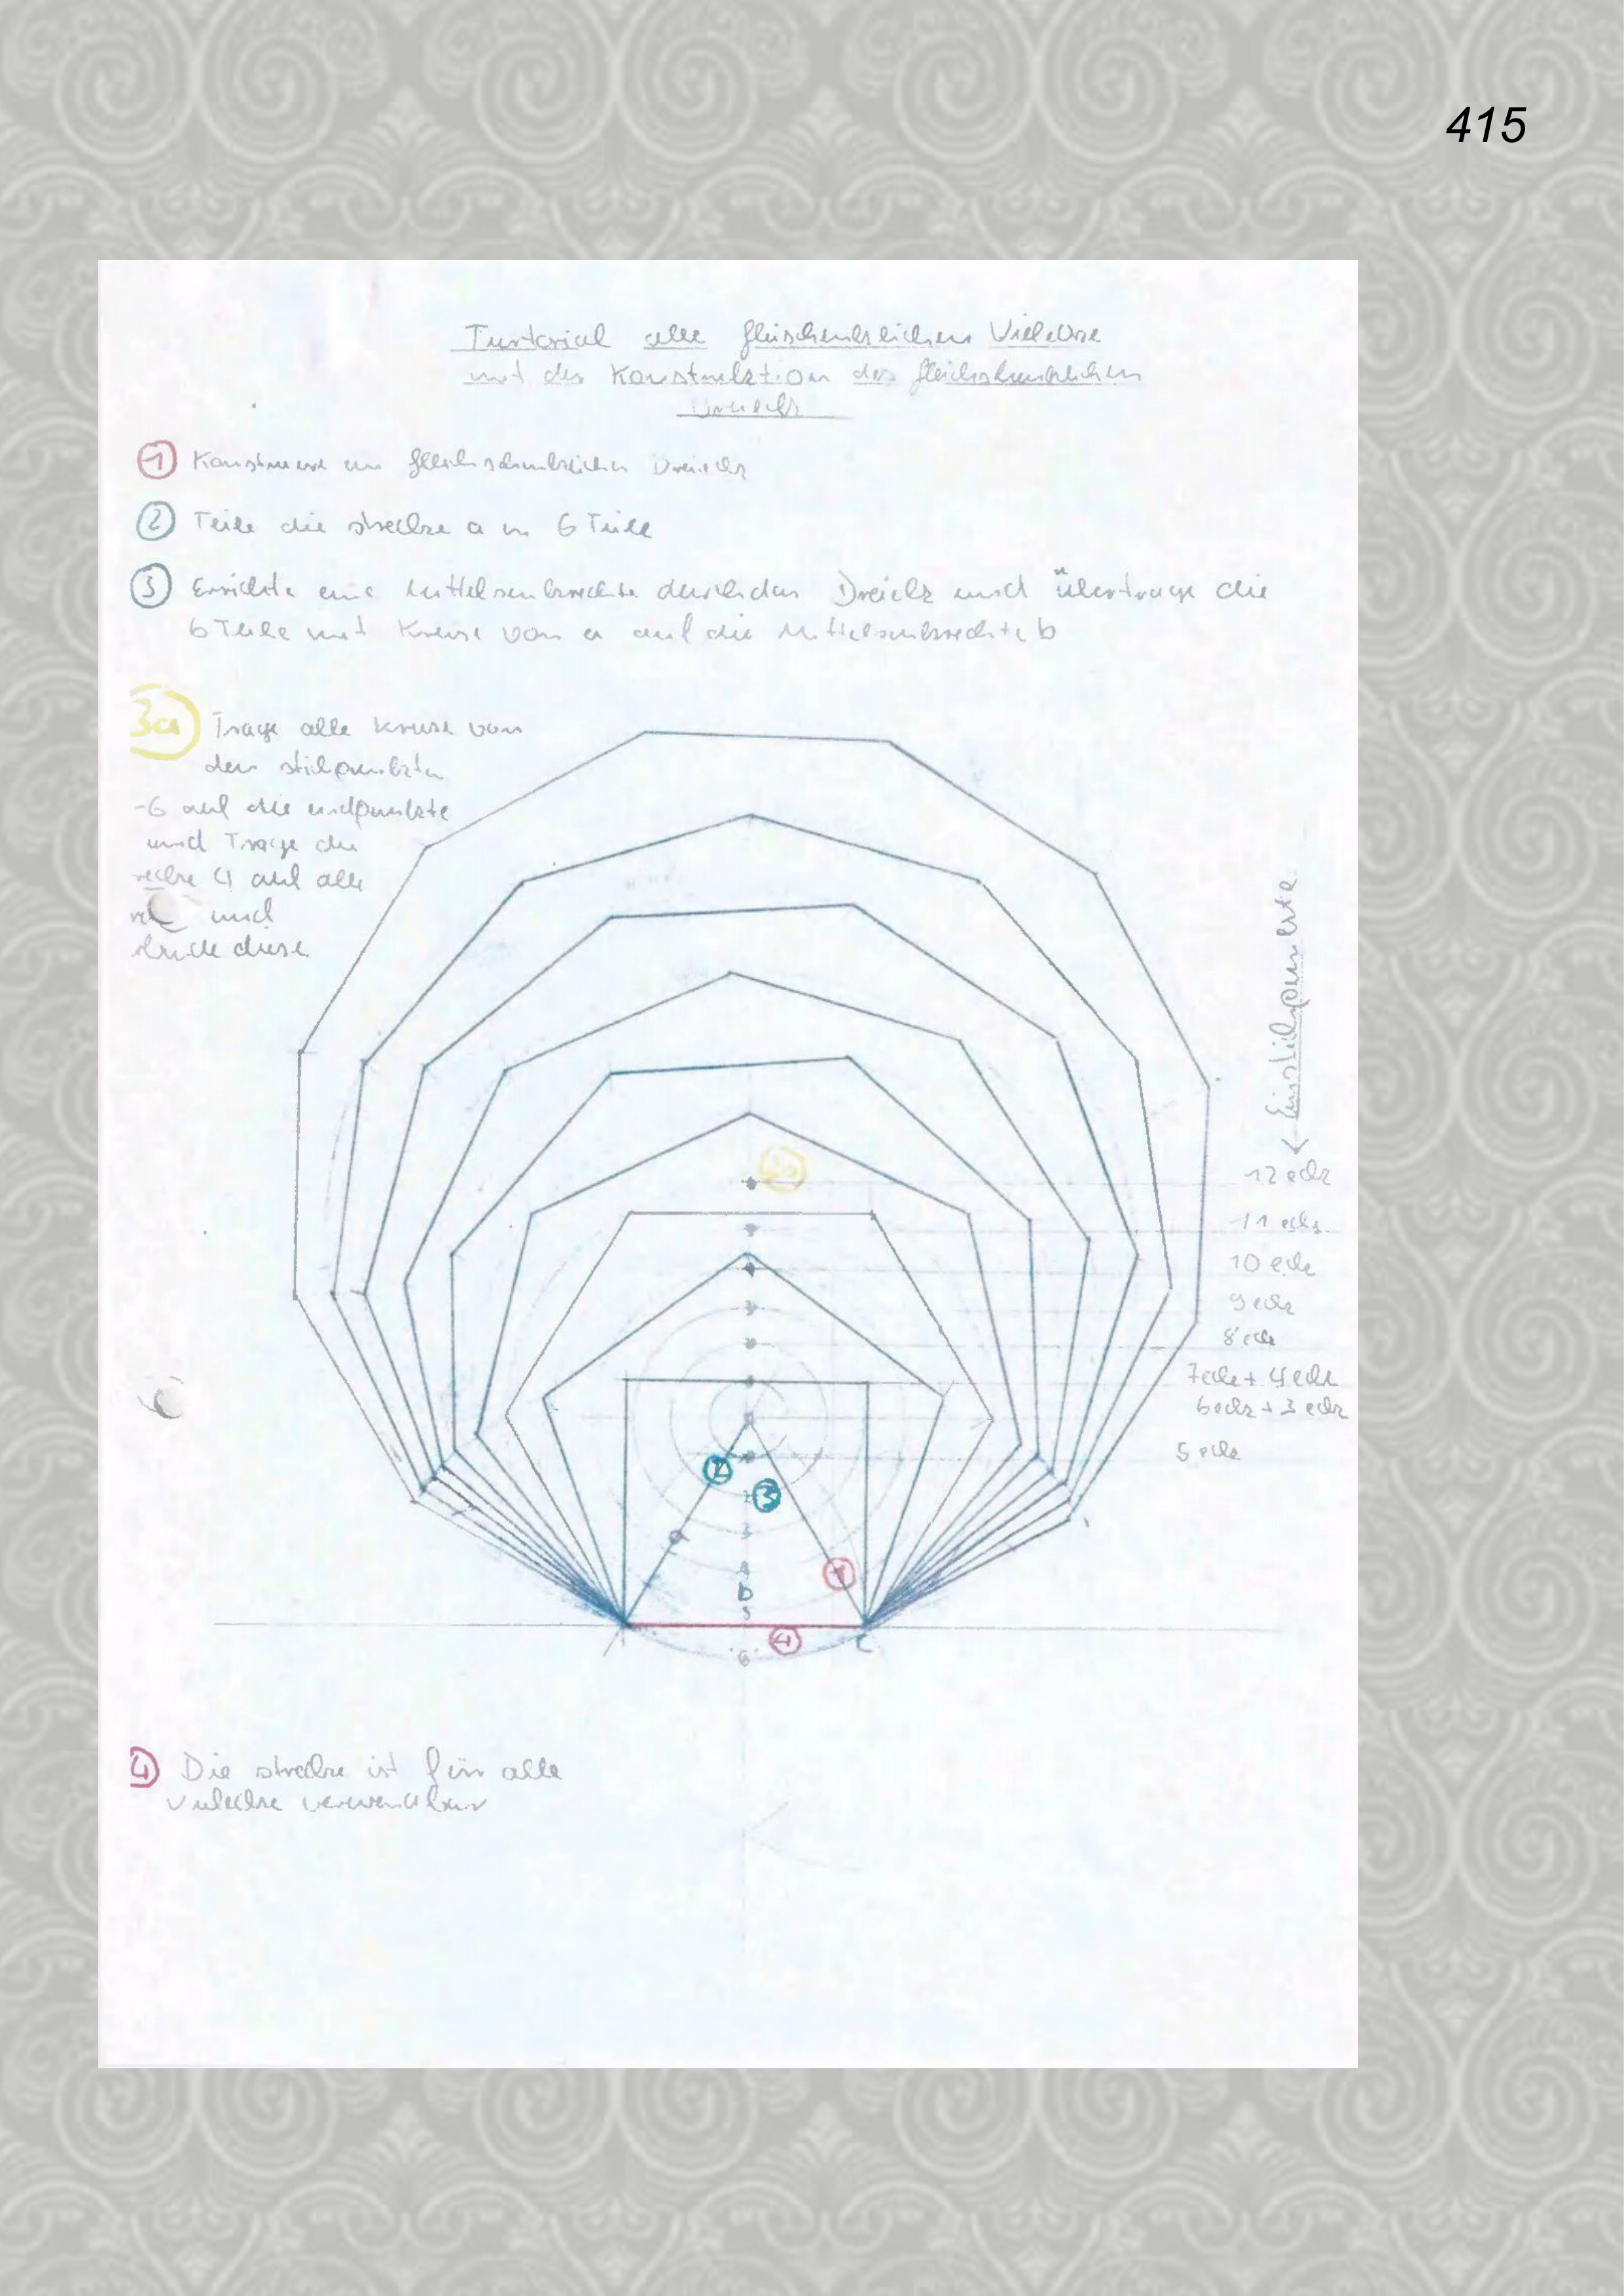 415
Turtorial alle gleischenklichen Vielekke
mit der Konstruktion des gleichschenklichen
Dreiecks
1 Konstruiere ein gleichschenkliches Dreiecks
2 Teile die strecke a in 6 Teile
3 Errichte eine Mittelsenkrechte durch das Dreieck und übertrage die
6 Teile mit Kreise von a auf die Mittelsenkrechte b
3a Trage alle kreise von
den stichpunkten
-6 auf die endpunkte
und Trage die
recke 4 auf alle
und
diese
Einstichpunkte
12 eck
11 ecks
10 eck
9 eck
8 eck
7 eck + 4 eck
6 eck + 3 eck
5 eck
2
3
a
2
3
1
4
b
5
4
6
4 Die strecke ist für alle
Vielecke verwendbar